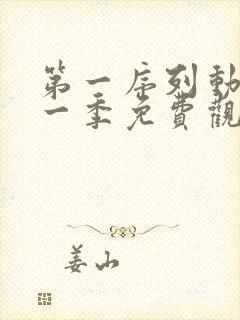 第一序列動
一季免費觀
姜山